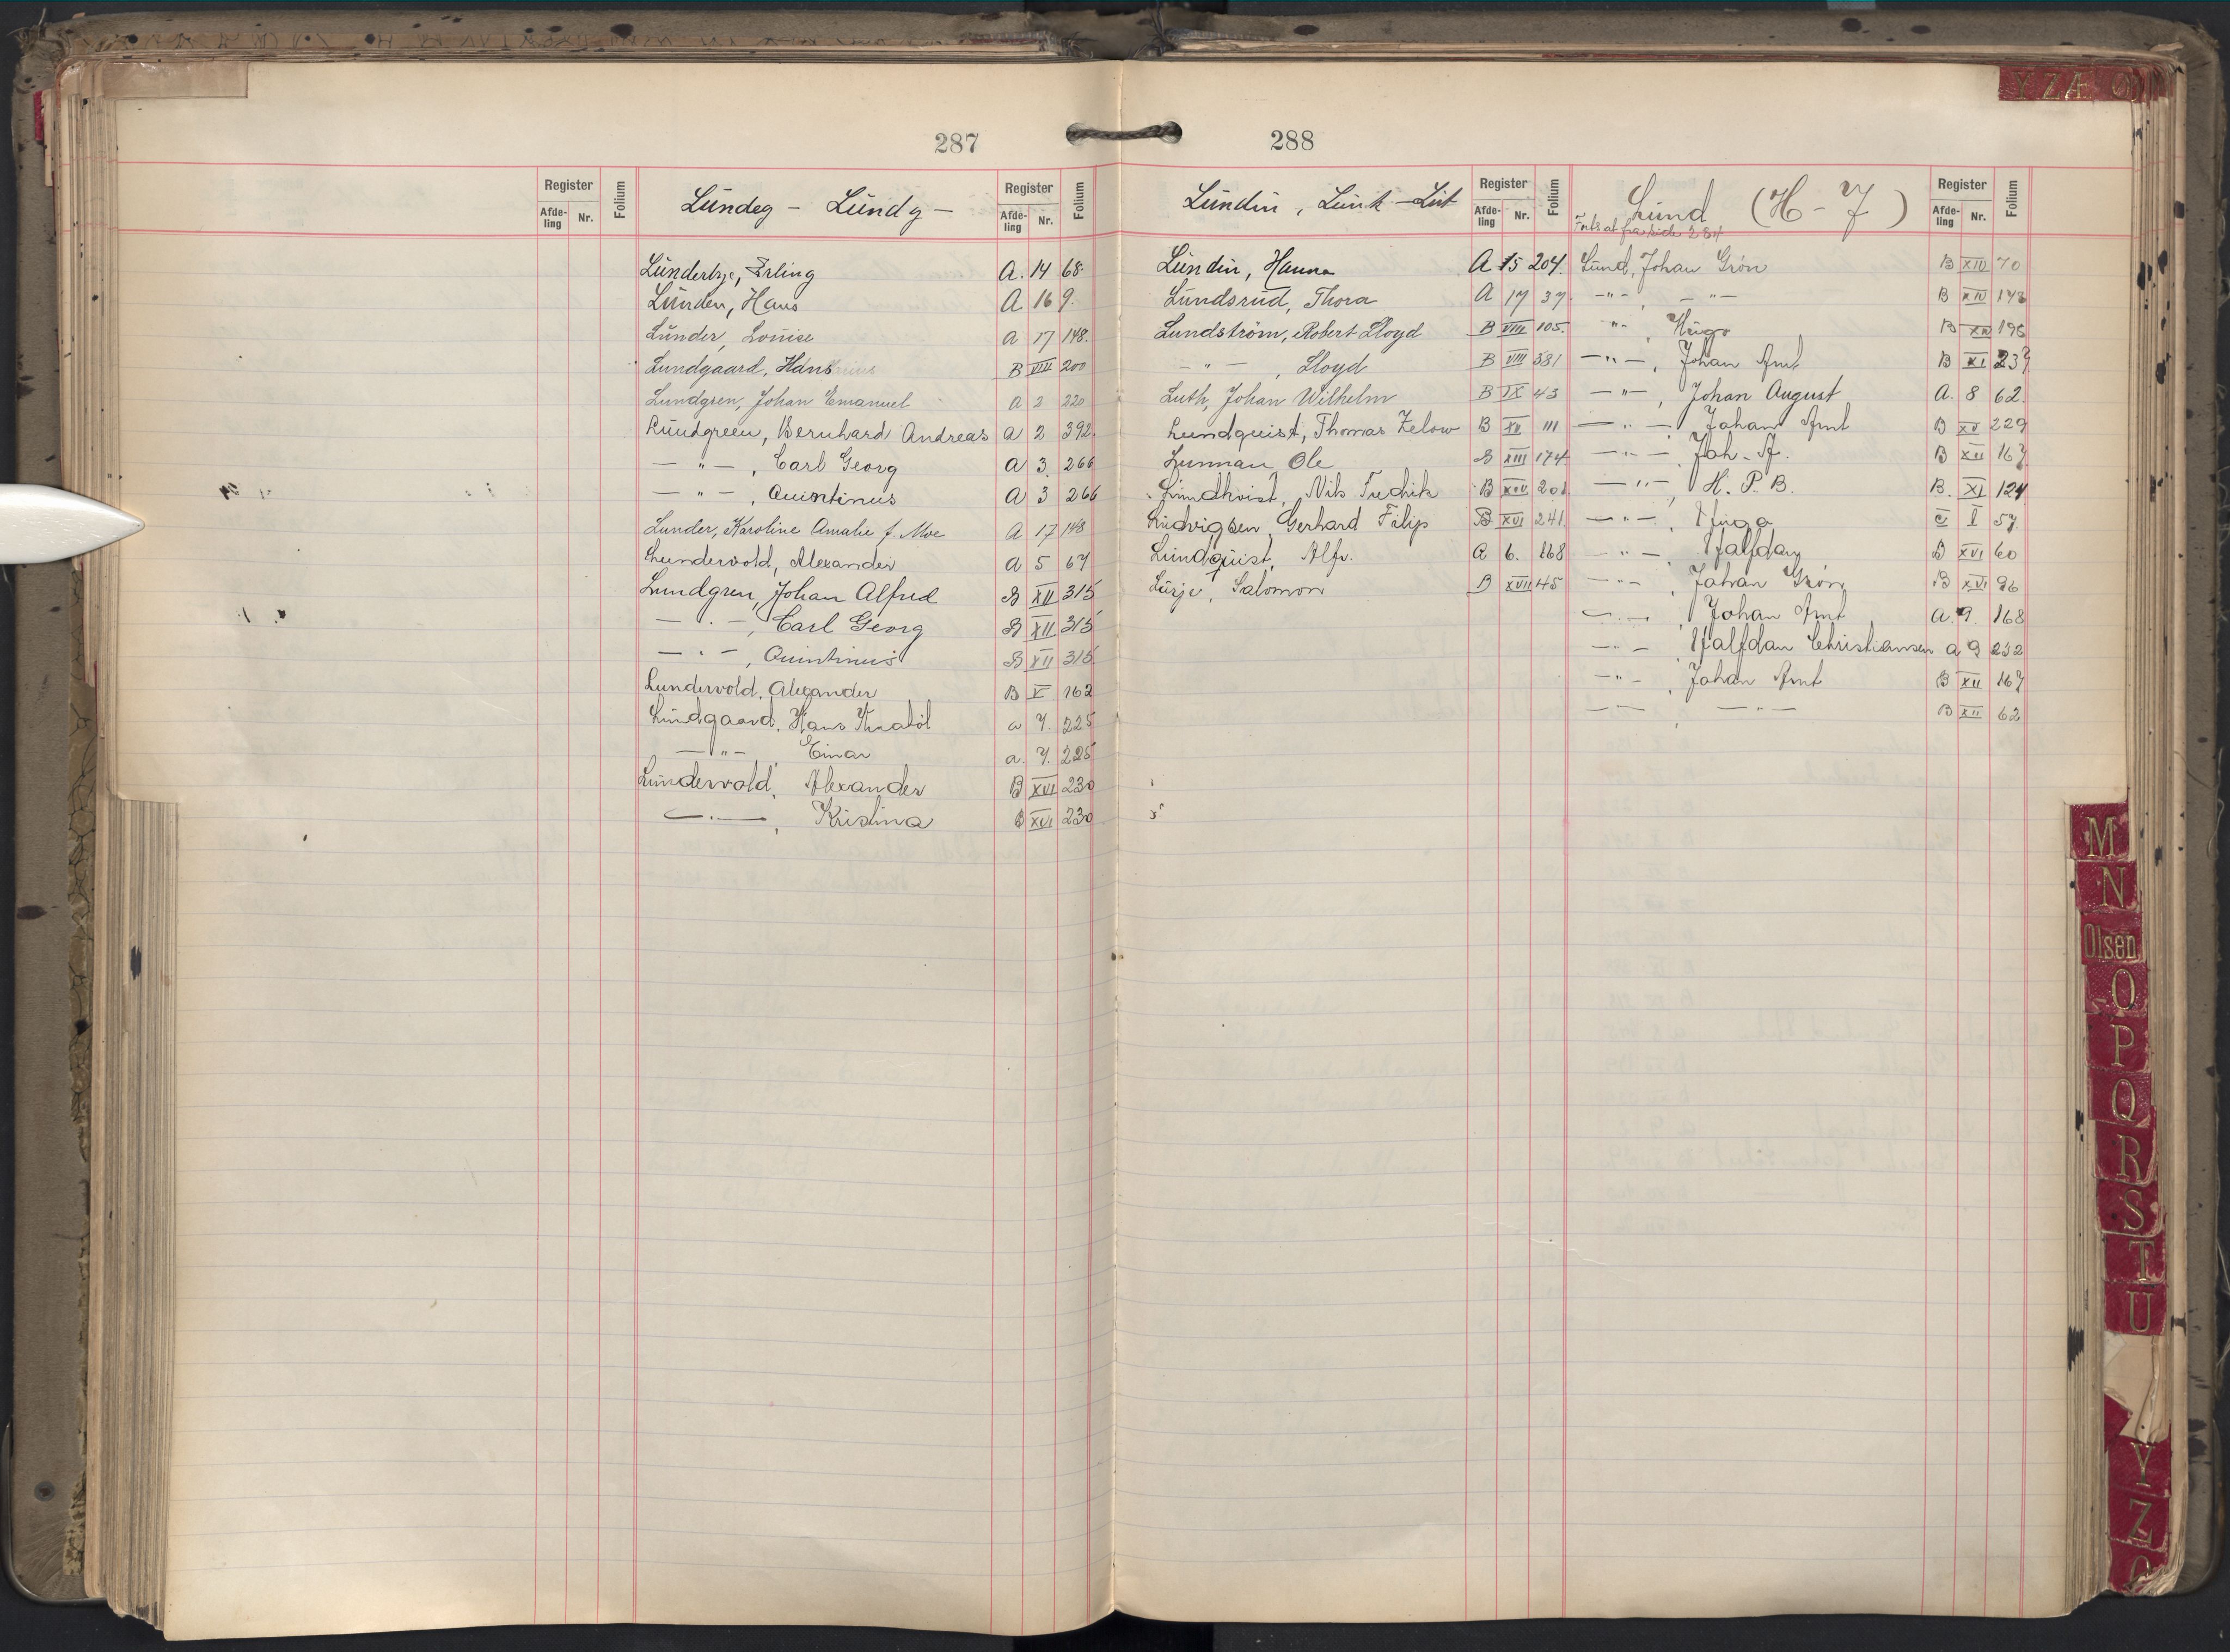 287
Register Folium
Afde-ling Nr.
Lündeg - Lündg -
Register Folium
Afde-ling Nr.
Lünderbye, Erling A. 14 68
Lünden, Haus A 16 9.
Lünder, Louise A 17 148.
Lundgaard, Hans B VIII 200
Lundgren, Johan Emanuel A 2 220
Lundgreen, Bernhard Andreas A 2 392
— " —, Carl Georg A 3 266
— " —, Quintinus A 3 266
Lunder, Karoline Amalie f. Moe A 17 148
Lundervold, Alexander A 5 67
Lundgren, Johan Alfred B XII 315
— " —, Carl Georg B XII 315
— " —, Quintinus B XII 315
Lundervold, Alexander B V 162
Lundgaard, Hans a 7. 225
— " — Einar a. 7. 225
Lundervold, Alexander B XVI 230
— " —, Kristina B XVI 230
288
Lündin, Lünk - Lüt
Register Folium
Afde-ling Nr.
Lündin, Hanna A 15 204.
Lündsrud, Thora A 17 37
Lundström, Robert Lloyd B VIII 105.
— " —, Lloyd B VIII 381
Luth, Johan Wilhelm B IX 43
Lundquist, Thomas Zelow B XII 111
Lunnan, Ole B XIII 174
Lundkvist, Nils Fredrik B XIV 201
Ludvigsen, Gerhard Filip B XVI 241
Lundquist, Alfr. A 6. 168
Lürje, Salomon B XVII 45
Lund (H - J)
Forts at fra side 284
Register Folium
Afde-ling Nr.
Lund, Johan Grön B XIV 70
— " —, — " — B XIV 143
— " —, Hugo B XIV 196
— " —, Johan Arnt B XI 237
— " —, Johan August A. 8 62.
— " — Johan Arnt B XV 229
— " —, Joh. A. B XII 167
— " —, H. P. B. B. XI 124
— " —, Hugo C I 57.
— " — Halfdan B XVI 60
— " —, Johan Grön B XVI 96
— " —, Johan Arnt A. 9. 168
— " — Halfdan Christiansen a 9 232
— " —, Johan Arnt B XII 167
— " —, — " — B XII 62
Y Z Æ Ø
M
N
Olsen
O
P
Q
R
S
T
U
Y
Z